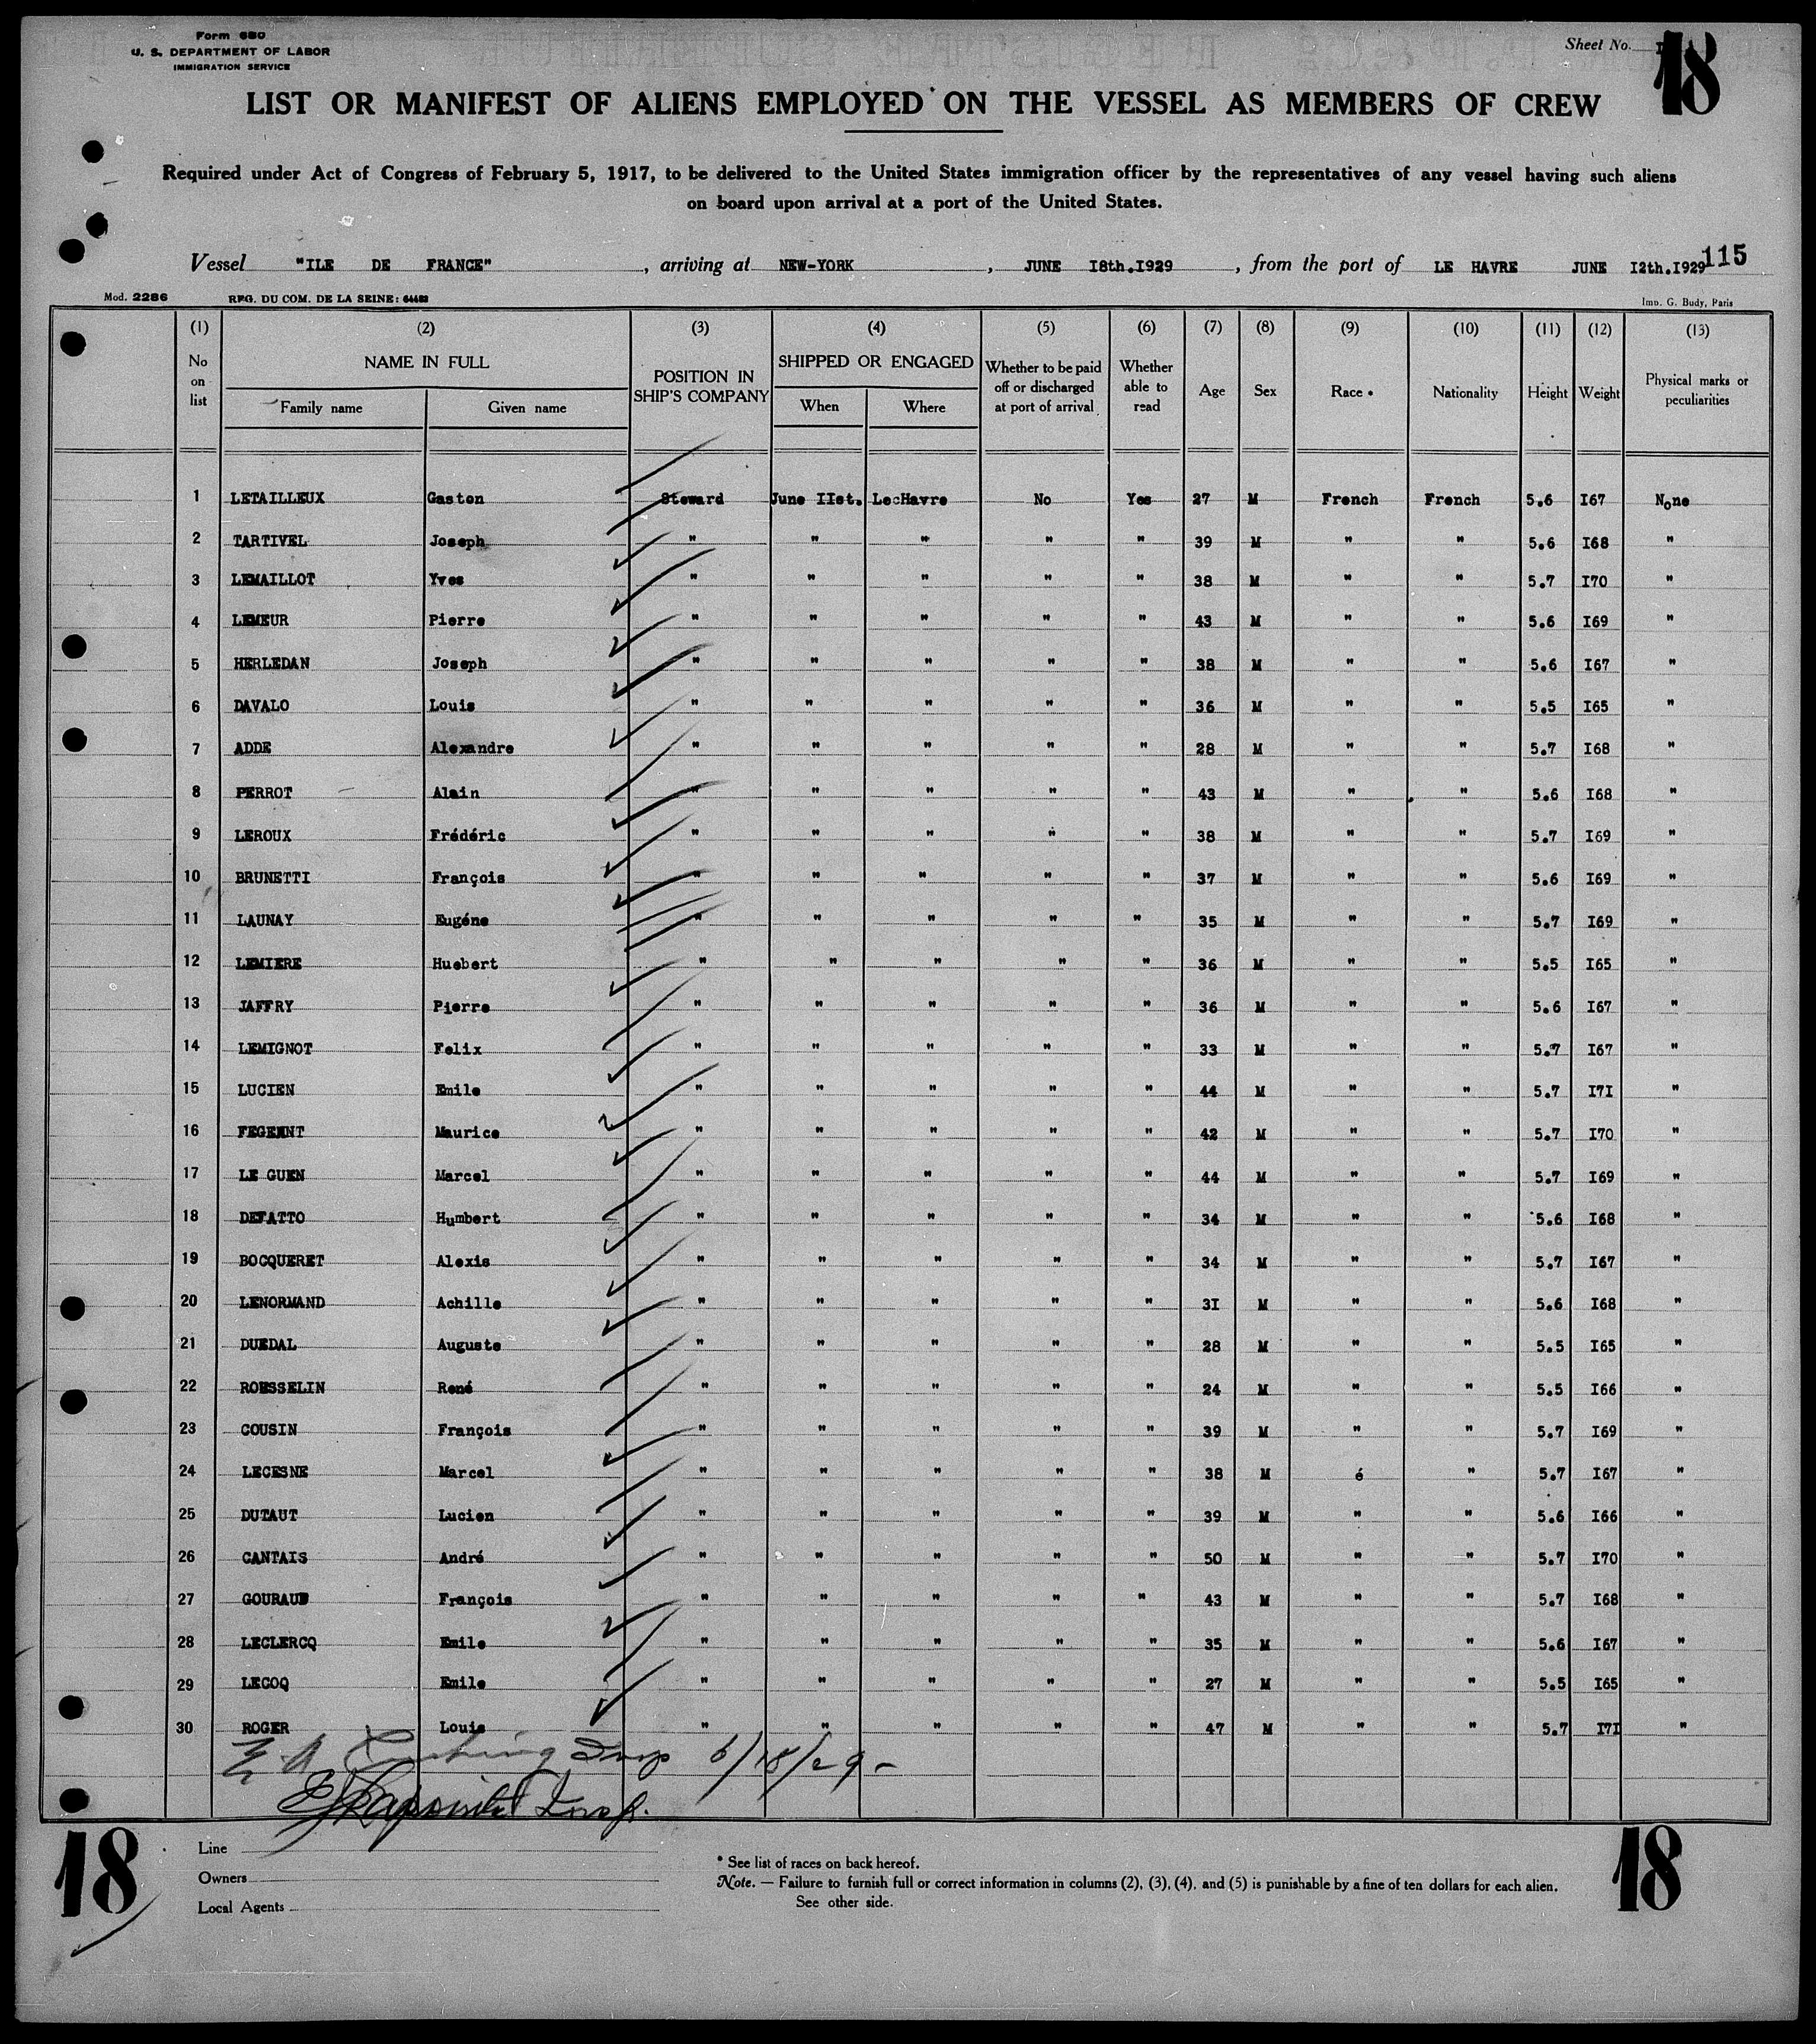 Form 680
U. S. DEPARTMENT OF LABOR
IMMIGRATION SERVICE
Sheet No.
18
LIST OR MANIFEST OF ALIENS EMPLOYED ON THE VESSEL AS MEMBERS OF CREW
Required under Act of Congress of February 5, 1917, to be delivered to the United States immigration officer by the representatives of any vessel having such aliens
on board upon arrival at a port of the United States.
115
Vessel "ILE DE FRANCE", arriving at NEW-YORK, JUNE I8th.I929, from the port of LE HAVRE JUNE I2th.I929
Mod. 2286 REG. DU COM. DE LA SEINE: 64483 Imp. G. Budy, Paris
(1) (2) (3) (4) (5) (6) (7) (8) (9) (10) (11) (12) (13)
No on list NAME IN FULL Family name Given name POSITION IN SHIP'S COMPANY SHIPPED OR ENGAGED When Where Whether to be paid off or discharged at port of arrival Whether able to read Age Sex Race * Nationality Height Weight Physical marks or peculiarities
1 LETAILLEUX Gaston Steward June IIst. LecHavre No Yes 27 M French French 5.6 I67 None
2 TARTIVEL Joseph " " " " " 39 M " " 5.6 I68 "
3 LEMAILLOT Yves " " " " " 38 M " " 5.7 I70 "
4 LEMEUR Pierre " " " " " 43 M " " 5.6 I69 "
5 HERLEDAN Joseph " " " " " 38 M " " 5.6 I67 "
6 DAVALO Louis " " " " " 36 M " " 5.5 I65 "
7 ADDE Alexandre " " " " " 28 M " " 5.7 I68 "
8 PERROT Alain " " " " " 43 M " " 5.6 I68 "
9 LEROUX Frédéric " " " " " 38 M " " 5.7 I69 "
10 BRUNETTI François " " " " " 37 M " " 5.6 I69 "
11 LAUNAY Eugéne " " " " " 35 M " " 5.7 I69 "
12 LEMIERE Huebert " " " " " 36 M " " 5.5 I65 "
13 JAFFRY Pierre " " " " " 36 M " " 5.6 I67 "
14 LEMIGNOT Felix " " " " " 33 M " " 5.7 I67 "
15 LUCIEN Emile " " " " " 44 M " " 5.7 I7I "
16 Maurice " " " " " 42 M " " 5.7 I70 "
17 LE GUEN Marcel " " " " " 44 M " " 5.7 I69 "
18 DEFATTO Humbert " " " " " 34 M " " 5.6 I68 "
19 BOCQUERET Alexis " " " " " 34 M " " 5.7 I67 "
20 LENORMAND Achille " " " " " 3I M " " 5.6 I68 "
21 DUEDAL Auguste " " " " " 28 M " " 5.5 I65 "
22 ROESSELIN René " " " " " 24 M " " 5.5 I66 "
23 COUSIN François " " " " " 39 M " " 5.7 I69 "
24 LECESNE Marcel " " " " " 38 M é " 5.7 I67 "
25 DUTAUT Lucien " " " " " 39 M " " 5.6 I66 "
26 CANTAIS André " " " " " 50 M " " 5.7 I70 "
27 GOURAUD François " " " " " 43 M " " 5.7 I68 "
28 LECLERCQ Emile " " " " " 35 M " " 5.6 I67 "
29 LECOQ Emile " " " " " 27 M " " 5.5 I65 "
30 ROGER Louis " " " " " 47 M " " 5.7 I7I "
Insp 6/18/29-
Insp.
18
Line
Owners
Local Agents
* See list of races on back hereof.
Note. — Failure to furnish full or correct information in columns (2), (3), (4), and (5) is punishable by a fine of ten dollars for each alien.
See other side.
18